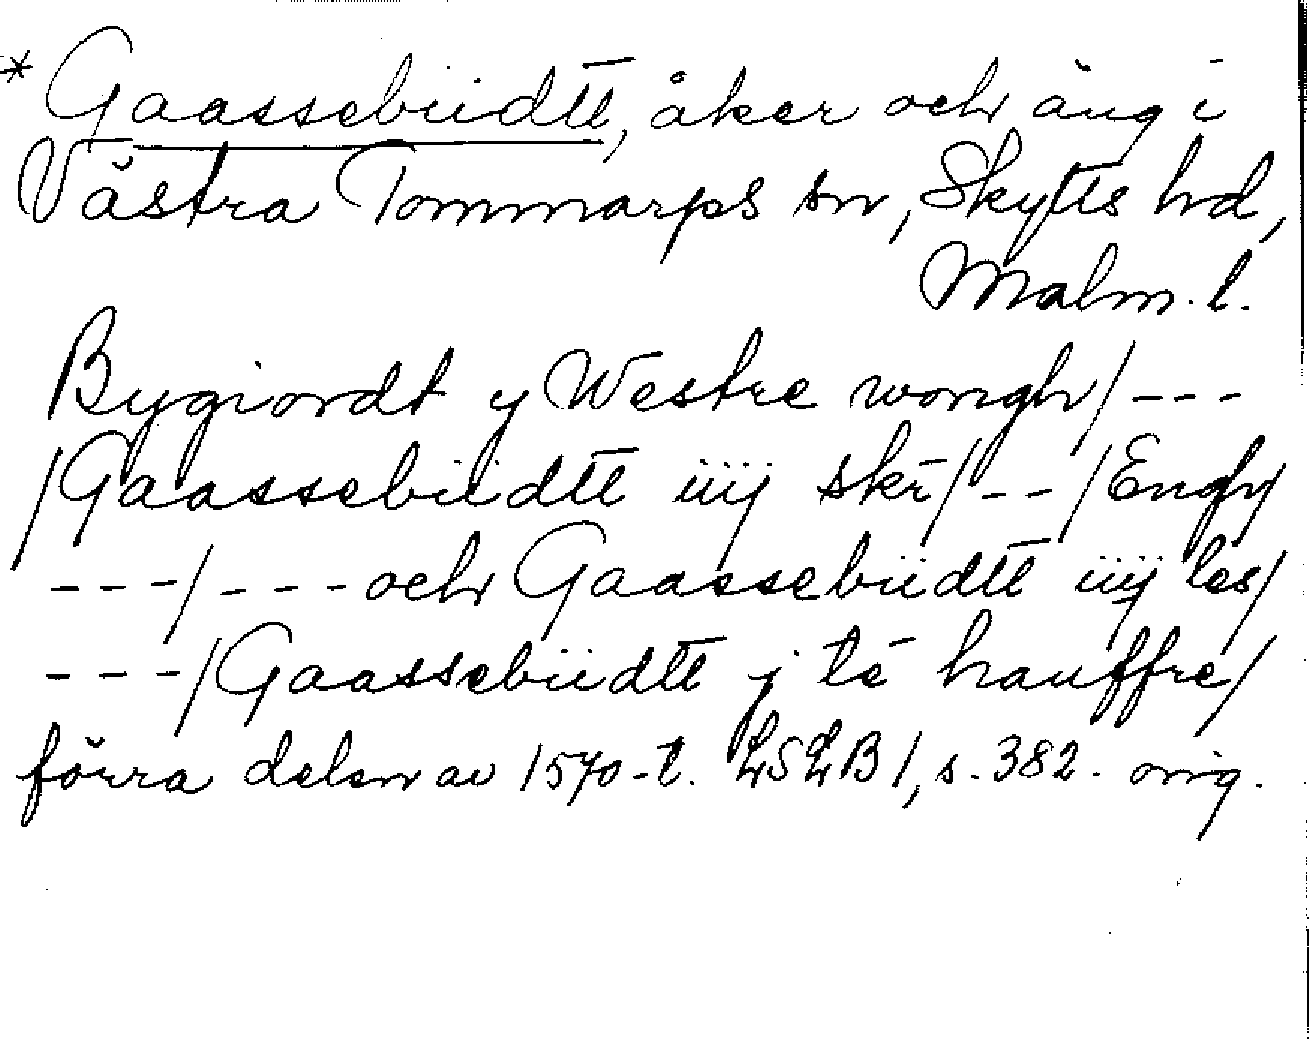 * Gaassebüdtt, åker och äng i
Västra Tommarps sn, Skytts hd,
Malm. l.
Bygiordt y Westre wongh/---
/Gaassebüdtt iiij skr̄/--/Engh/
---/---och Gaassebüdtt iiij les/
---/Gaassebüdtt j té hauffre/
förra delen av 1570-t. LSLB I, s. 382. orig.